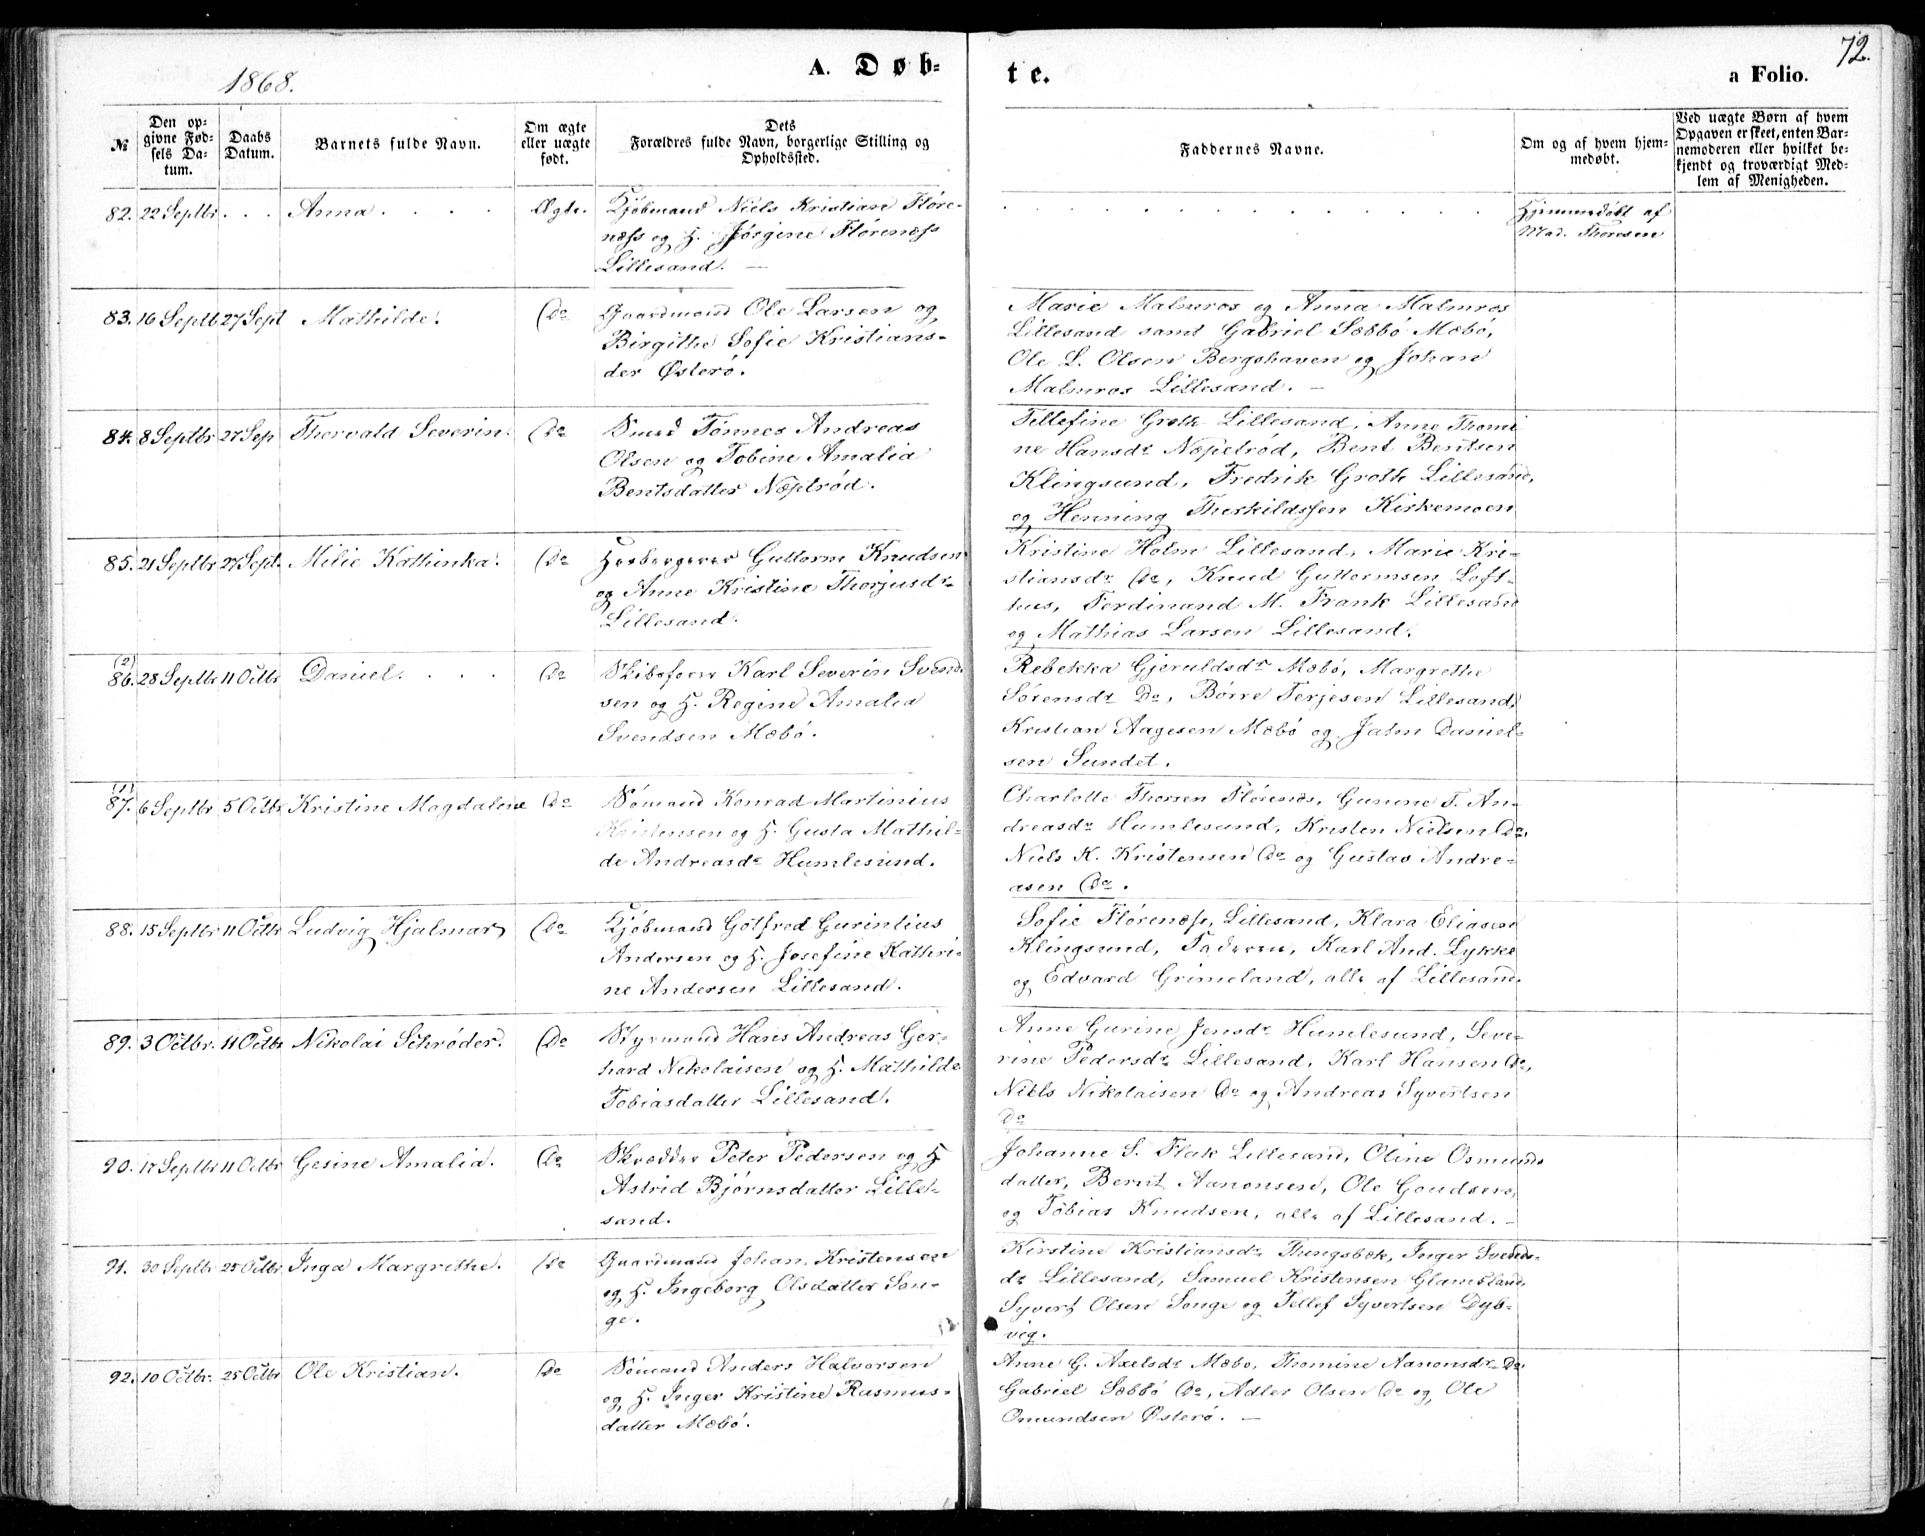 72.
1868.
A. Døb-
te.
a Folio.
№
Den op-
givne Fød-
sels Da-
tum.
Daabs
Datum.
Barnets fulde Navn.
Om ægte
eller uægte
født.
Dets
Forældres fulde Navn, borgerlige Stilling og
Opholdssted.
Faddernes Navne.
Om og af hvem hjem-
medøbt.
Ved uægte Børn af hvem
Opgaven er skeet, enten Bar-
nemoderen eller hvilket be-
kjendt og troværdigt Med-
lem af Menigheden.
82. 22 Septbr . . . Anna . . . . Ægte. Kjøbmand Niels Kristian Fløre-
næss og H. Jørgine Flørenæss
Lillesand. —
Hjemmedøbt af
Mad. Thoresen
83. 16 Septb 27 Sept Mathilde. Do Gaardmand Ole Larsen og
Birgithe Sofie Kristians-
der Østerö.
Marie Malmros og Anna Malmros
Lillesand samt Gabriel Sæbbö Mæbö,
Ole L. Olsen Bergshaven og Johan
Malmros Lillesand. —
84. 8 Septbr 27 Sep Thorvald Severin. Do Smed Tønnes Andreas
Olsen og Tobine Amalia
Bentsdatter Næplrød.
Tellefine Groth Lillesand, Anne Thomi
ne Hansdr Næpelrød, Bent Bentsen
Klingsund, Fredrik Groth Lillesand,
og Henning Therkildssen Kirkemoen
85. 21 Septbr 27 Sept. Milie Kathinka. Do Herbergerer Guttorm Knudsen
og Anne Kristine Thorjusdr
Lillesand.
Kristine Holm Lillesand, Marie Kri-
stiansdr Do, Knud Guttormsen Loft-
hus, Ferdinand M. Frank Lillesand
og Mathias Larsen Lillesand.
(2)
86. 28 Septbr 11 Octbr Daniel. . . . Do Skibsfører Karl Severin Svend-
sen og H. Regine Amalia
Svendsen Mæbö.
Rebekka Gjeruldsdr Mæbö, Margrethe
Sørensdr Do, Børre Terjesen Lillesand,
Kristian Aagesen Mæbö og Jahn Daniel-
sen Sundet.
(1)
87. 6 Septbr 5 Octbr Kristine Magdalene Do Sømand Konrad Martinius
Kristensen og H. Gusta Mathil-
de Andreasdr Humlesund.
Charlotte Thorsen Flørenes, Gunine T. An-
dreasdr Humlesund, Kristen Nielsen Do,
Niels K. Kristensen Do og Gustav Andre-
asen Do.
88. 15 Septbr 11 Octbr Ludvig Hjalmar Do Kjøbmand Gotfred Gurintius
Andersen og H. Josefine Kathri-
ne Andersen Lillesand.
Sofie Flørenæss, Lillesand, Klara Eliasen
Klingsund, Faderen, Karl And. Lykke
og Edvard Grimeland, alle af Lillesand.
89. 3 Octbr. 11 Octbr Nikolai Schrøder. Do Styrmand Hans Andreas Ger-
hard Nikolaisen og H. Mathilde
Tobiasdatter Lillesand.
Anne Gurine Jensdr Humlesund, Seve-
rine Pedersdr Lillesand, Karl Hansen Do,
Niels Nikolaisen Do og Andreas Syvertsen
Do
90. 17 Septbr 11 Octbr Gesine Amalia. Do Skredder Peter Pedersen og H
Astrid Bjørnsdatter Lille-
sand.
Johanne S. Flak Lillesand, Oline Osmunds
datter, Bernt Aanonsen, Ole
og Tobias Knudsen, alle af Lillesand. —
91. 30 Septbr 25 Octbr Inga Margrethe. Do Gaardmand Johan Kristensen
og H. Ingeborg Olsdatter Son-
ge.
Kirstine Kristiansdr Thingsbæk, Inger Svends-
dr Lillesand, Samuel Kristensen Glamsland,
Syvert Olsen Songe og Tellef Syvertsen Dyb-
vig.
92. 10 Octbr. 25 Octbr Ole Kristian. Do Sømand Anders Halvorsen
og H. Inger Kristine Rasmus-
datter Mæbö.
Anne G. Axelsdr Mæbo, Thomine Aanonsdr Do
Gabriel Sæbbö Do, Adler Olsen Do og Ole
Omundsen Østerö. —